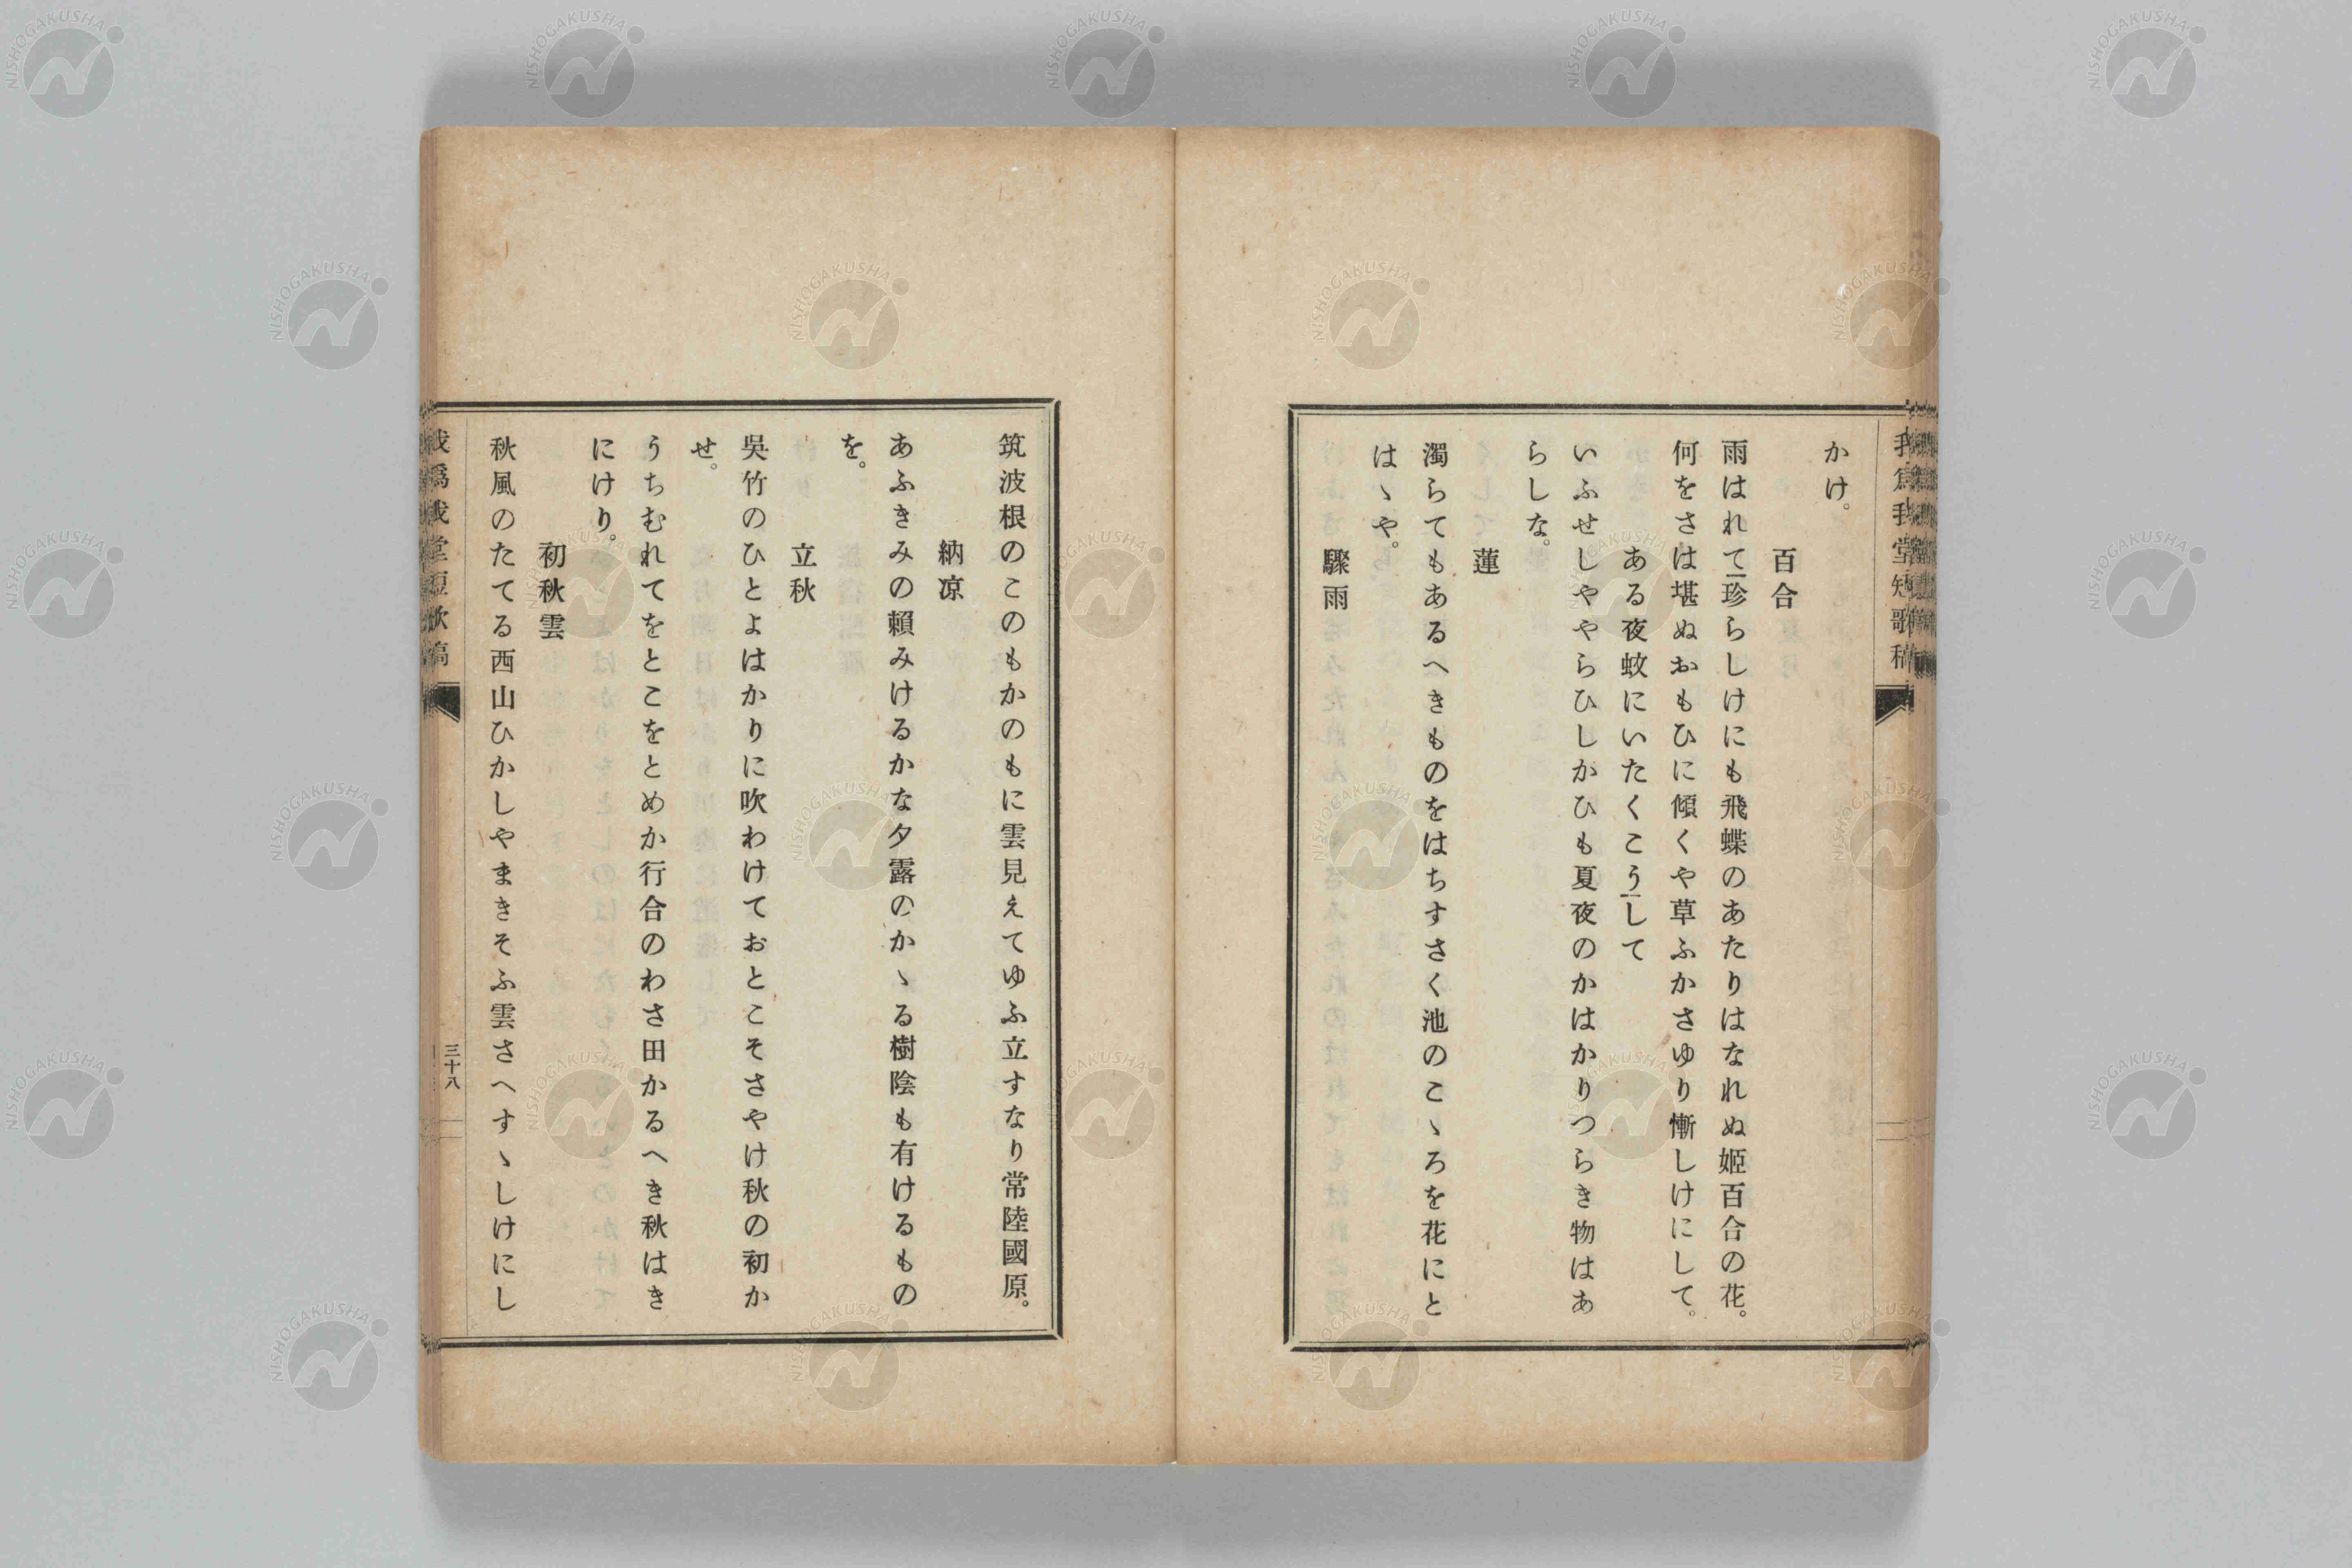 我爲我堂短歌稿
かけ。
百合
雨はれて珍らしけにも飛蝶のあたりはなれぬ姬百合の花。
何をさは堪ぬおもひに傾くや草ふかさゆり慚しけにして。
ある夜蚊にいたくこうして
いふせしややらひしかひも夏夜のかはかりつらき物はあ
らしな。
蓮
濁らてもあるへきものをはちすさく池のこゝろを花にと
はゝや。
驟雨
筑波根のこのもかのもに雲見えてゆふ立すなり常陸國原。
納凉
あふきみの賴みけるかな夕露のかゝる樹陰も有けるもの
を。
立秋
吳竹のひとよはかりに吹わけておとこそさやけ秋の初か
せ。
うちむれてをとこをとめか行合のわさ田かるへき秋はき
にけり。
初秋雲
秋風のたてる西山ひかしやまきそふ雲さへすゝしけにし
我爲我堂短歌稿
三十八
NISHOGAKUSHA